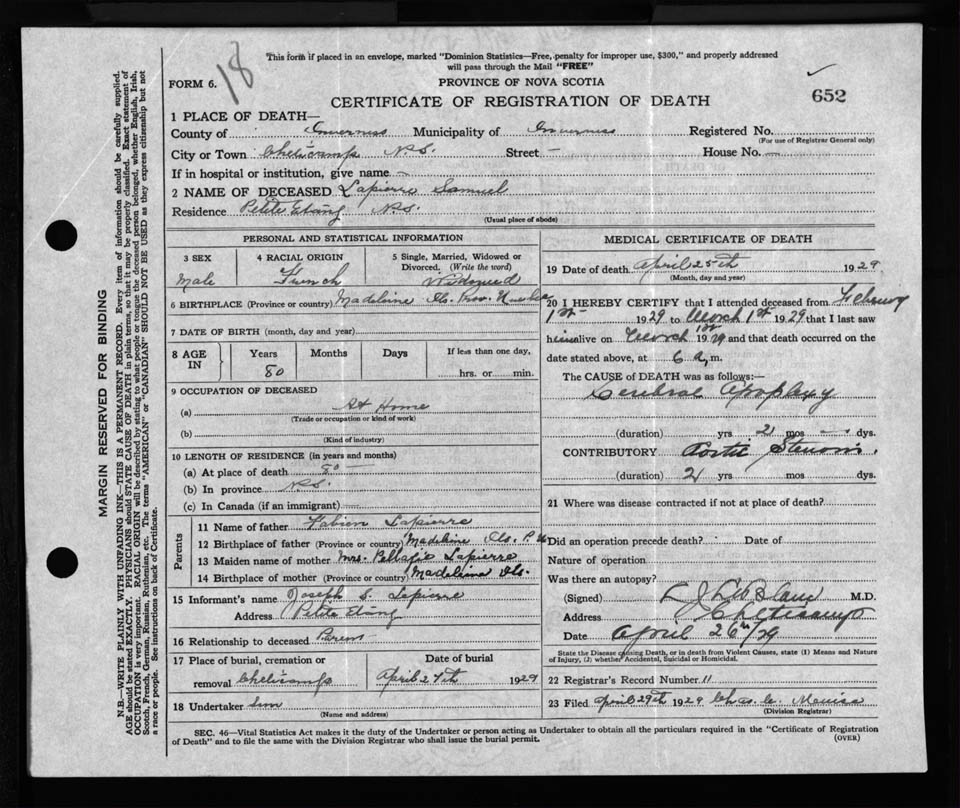 18
This form if placed in an envelope, marked "Dominion Statistics—Free, penalty for improper use, $300," and properly addressed
will pass through the Mail "FREE"
FORM 6.
PROVINCE OF NOVA SCOTIA
CERTIFICATE OF REGISTRATION OF DEATH
652
1 PLACE OF DEATH—
County of Inverness Municipality of Inverness Registered No.
(For use of Registrar General only)
City or Town Cheticamp N.S. Street – House No. —
If in hospital or institution, give name –
2 NAME OF DECEASED Lapierre Samuel
Residence Petite Etang N.S.
(Usual place of abode)
PERSONAL AND STATISTICAL INFORMATION
3 SEX 4 RACIAL ORIGIN 5 Single, Married, Widowed or
Divorced. (Write the word)
Male French Widowed
6 BIRTHPLACE (Province or country) Madeline Is. Prov.
7 DATE OF BIRTH (month, day and year)
8 AGE IN Years Months Days If less than one day,
80 hrs. or min.
9 OCCUPATION OF DECEASED
(a) At Home
(Trade or occupation or kind of work)
(b)
(Kind of industry)
10 LENGTH OF RESIDENCE (in years and months)
(a) At place of death 80 —
(b) In province N.S.
(c) In Canada (if an immigrant)
Parents
11 Name of father Fabien Lapierre
12 Birthplace of father (Province or country) Madeline Is.
13 Maiden name of mother Mrs. Lapierre
14 Birthplace of mother (Province or country) Madeline Is.
15 Informant's name Joseph S. Lapierre
Address Petite Etang
16 Relationship to deceased
17 Place of burial, cremation or Date of burial
removal Cheticamp April 27th 1929
18 Undertaker
(Name and address)
MEDICAL CERTIFICATE OF DEATH
19 Date of death April 25th 1929
(Month, day and year)
20 I HEREBY CERTIFY that I attended deceased from February
1st 1929 to March 1st 1929 that I last saw
him alive on March 1st 1929 and that death occurred on the
date stated above, at 6 a. m.
The CAUSE of DEATH was as follows:—
Cerebral Apoplexy
(duration) yrs 2 mos — dys.
CONTRIBUTORY Aortic Stenosis.
(duration) 2 yrs mos dys.
21 Where was disease contracted if not at place of death?
Did an operation precede death? Date of
Nature of operation
Was there an autopsy?
(Signed) LeBlanc M.D.
Address Cheticamp
Date April 26/29
State the Disease causing Death, or in death from Violent Causes, state (1) Means and Nature
of Injury, (2) whether Accidental, Suicidal or Homicidal.
22 Registrar's Record Number 11
23 Filed April 29th 1929 Chas.
(Division Registrar)
SEC. 46—Vital Statistics Act makes it the duty of the Undertaker or person acting as Undertaker to obtain all the particulars required in the "Certificate of Registration
of Death" and to file the same with the Division Registrar who shall issue the burial permit. (OVER)
MARGIN RESERVED FOR BINDING
N.B.—WRITE PLAINLY WITH UNFADING INK—THIS IS A PERMANENT RECORD. Every item of information should be carefully supplied.
AGE should be stated EXACTLY. PHYSICIANS should STATE CAUSE OF DEATH in plain terms, so that it may be properly classified. Exact statement of
OCCUPATION is very important. RACIAL ORIGIN will be described by stating to what people or tongue the deceased person belonged, whether English, Irish,
Scotch, French, German, Russian, Ruthenian, etc. The terms "AMERICAN" or "CANADIAN" SHOULD NOT BE USED as they express citizenship but not
a race or people. See instructions on back of Certificate.